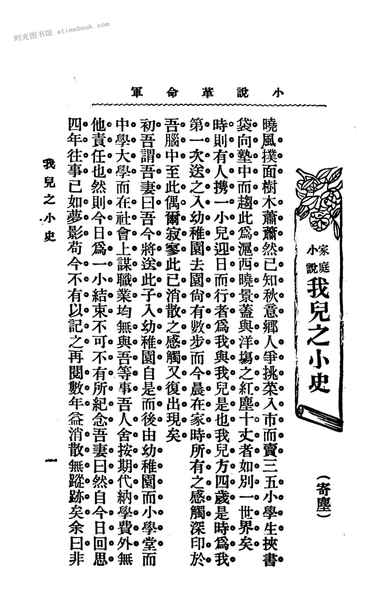 刘克图书馆 zlinebook.com
小說革命軍
家庭小說
我兒之小史
(寄塵)
曉風撲面樹木蕭蕭然已知秋意鄉人爭挑菜入市而賣三五小學生挾書
袋向塾中而趨此爲滬西曉景蓋與洋塲之紅塵十丈者如別一世界矣
時則有人攜一小兒迎日而行者爲我與我兒是也我兒方四歲是時爲我
第一次送之入幼稚園去園尙有數步而今晨在家時所有之感觸深印於
吾腦中至此偶爾寂寥此已消散之感觸又復出現矣
初吾謂吾妻曰吾今將送此子入幼稚園自是而後由幼稚園而小學堂而
中學大學而在社會上謀職業均無與吾等事吾人舍按期代納學費外無
他責任也然則今日爲一小結束不可不有所紀念吾妻曰然自今日回思
四年往事已如夢影苟今不有以記之再閱數年益消散無蹤跡矣余曰非
我兒之小史
一